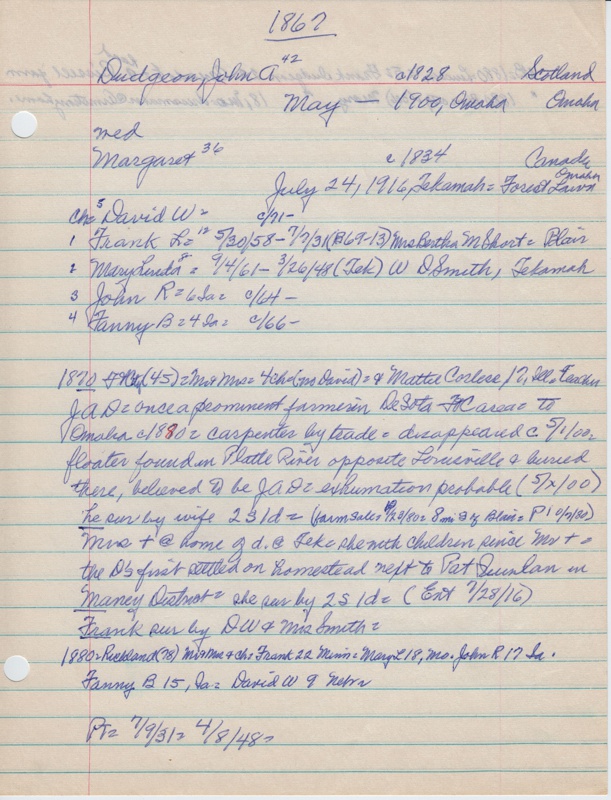 1867
Dudgeon, John A 42 c1828 Scotland
May — 1900, Omaha Omaha
med
Margaret 36 c 1834 Canada
July 24, 1916, Tekamah = Forest Lawn Omaha
Ch = 5 David W = c/71 -
1 Frank L = 12 5/30/58 - 7/7/31 (B69-13) Mrs Bertha M Short = Blair
2 Mary Linda 8 = 9/4/61 - 3/26/48 (Tek) W D Smith, Tekamah
3 John R = 6 Ia = c/64 -
4 Fanny B = 4 Ia = c/66 -
1870 (45) = Mr & Mrs = 4 ch = (no David) = & Mattie 17, Ill. Teacher
JAD = once a prominent farmer in DeSota FC area = to
Omaha c1880 = carpenter by trade = disappeared c 5/1/00 =
floater found in Platte River opposite Louisville & buried
there, believed to be JAD = exhumation probable (5/x/00)
he sur by wife 2S 1d = (farm sale = 8 mi S of Blair = P
Mrs + @ home of d. @ Tek = she with children since Mr + =
the D's first settled on homestead next to Pat Quinlan in
Maney District = she sur by 2S 1d = (Ent 7/28/16)
Frank sur by DW & Mrs Smith =
1880 = Richland (78) Mr & Mrs & Ch = Frank 22 Minn = Mary L 18, Mo. John R 17 Ia.
Fanny B 15, Ia = David W 9 Nebr
PT = 7/9/31 = 4/8/48 =